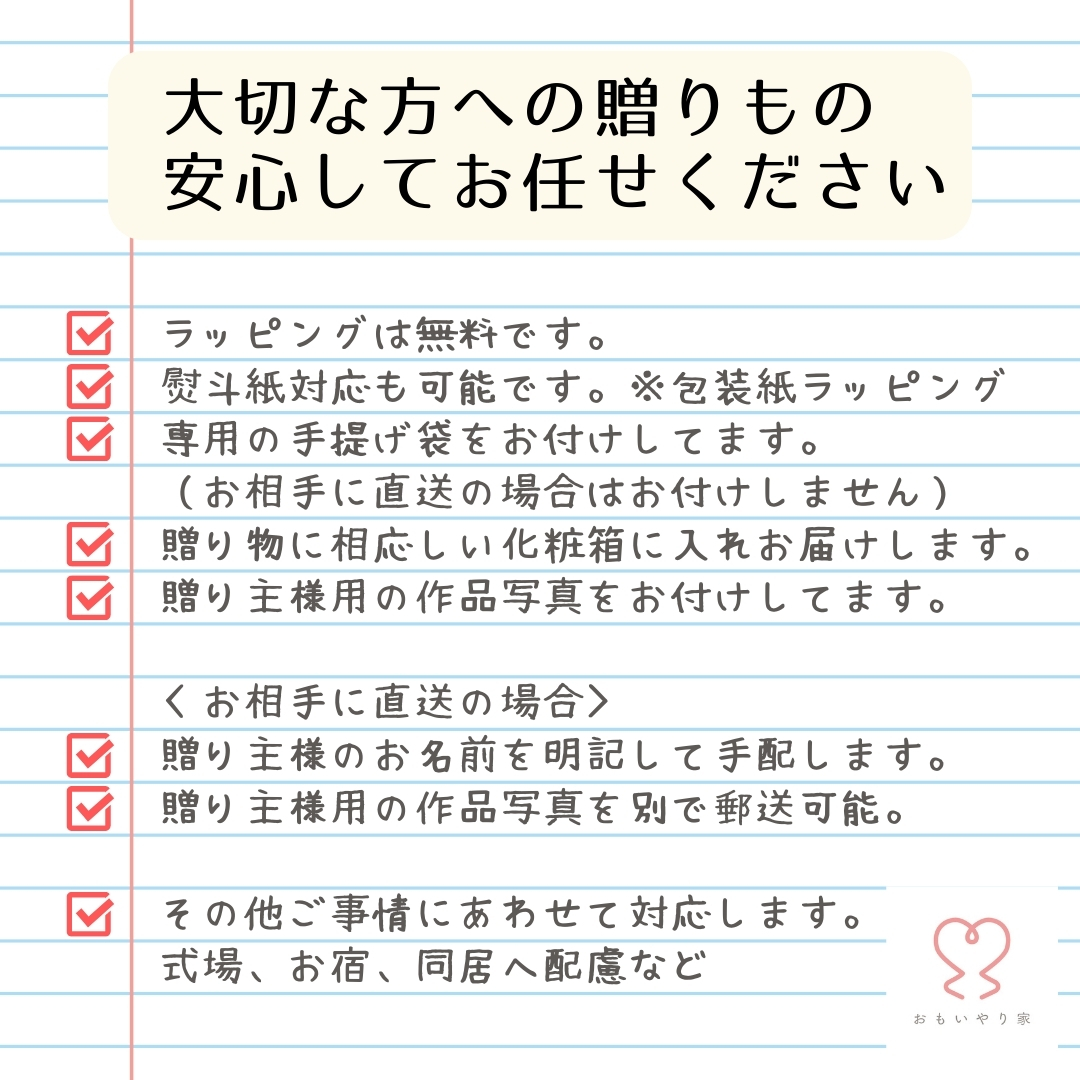 大切な方への贈りもの
安心してお任せください
ラッピングは無料です。
熨斗紙対応も可能です。※包装紙ラッピング
専用の手提げ袋をお付けしてます。
（お相手に直送の場合はお付けしません）
贈り物に相応しい化粧箱に入れお届けします。
贈り主様用の作品写真をお付けしてます。
〈お相手に直送の場合〉
贈り主様のお名前を明記して手配します。
贈り主様用の作品写真を別で郵送可能。
その他ご事情にあわせて対応します。
式場、お宿、同居へ配慮など
おもいやり家